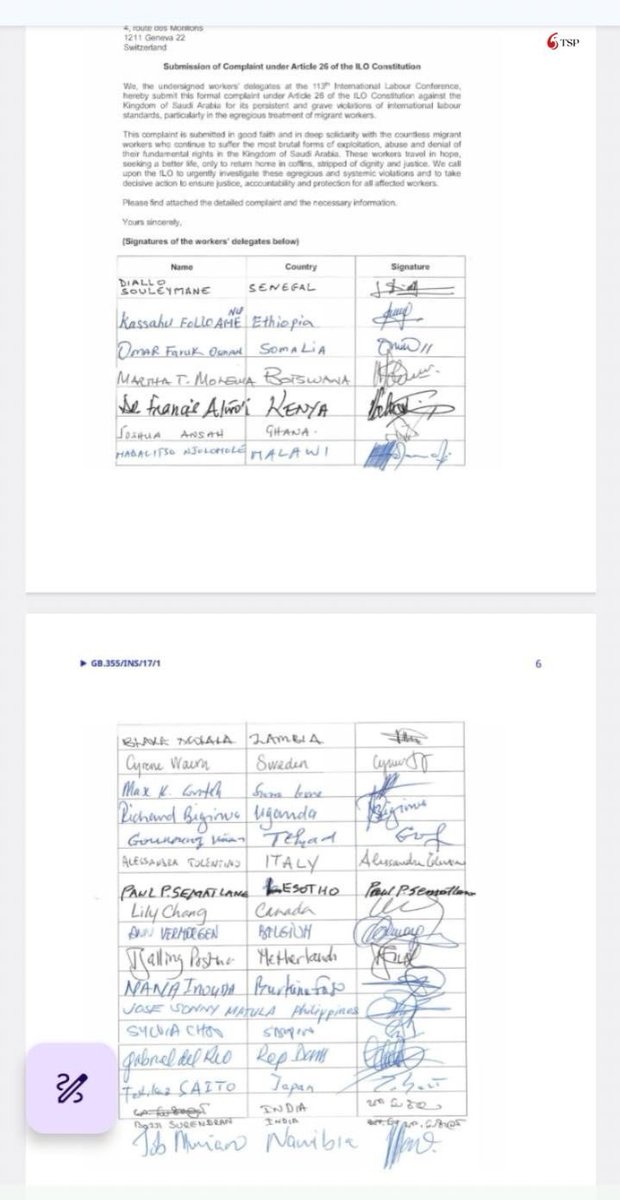 4, route des Morillons
1211 Geneva 22
Switzerland
TSP
Submission of Complaint under Article 26 of the ILO Constitution
We, the undersigned workers' delegates at the 113th International Labour Conference,
hereby submit this formal complaint under Article 26 of the ILO Constitution against the
Kingdom of Saudi Arabia for its persistent and grave violations of international labour
standards, particularly in the egregious treatment of migrant workers.
This complaint is submitted in good faith and in deep solidarity with the countless migrant
workers who continue to suffer the most brutal forms of exploitation, abuse and denial of
their fundamental rights in the Kingdom of Saudi Arabia. These workers travel in hope,
seeking a better life, only to return home in coffins, stripped of dignity and justice. We call
upon the ILO to urgently investigate these egregious and systemic violations and to take
decisive action to ensure justice, accountability and protection for all affected workers.
Please find attached the detailed complaint and the necessary information.
Yours sincerely,
(Signatures of the workers' delegates below)
Name Country Signature
DIALLO
SOULEYMANE SENEGAL
Kassahu FOLLO AME Ethiopia
OMAR FARUK OSMAN SOMALIA
MARTHA T. BOTSWANA
Francis KENYA
JOSHUA ANSAH GHANA.
MALAWI
GB.355/INS/17/1 6
ZAMBIA
Sweden
Max K.
Richard Bigirwa Uganda
Tchad
ALESSANDRA TOLENTINO ITALY
PAUL P. SEMATLANE LESOTHO Paul P Sematlane
Lily Chang Canada
ANN VERMORGEN BELGIUM
Netherlands
NANA Burkina Faso
JOSE SONNY MATULA Philippines
SYLVIA CHOO
Gabriel del Rio Rep Dom
SAITO Japan
INDIA
SURENDRAN INDIA
Job Muniaro Namibia